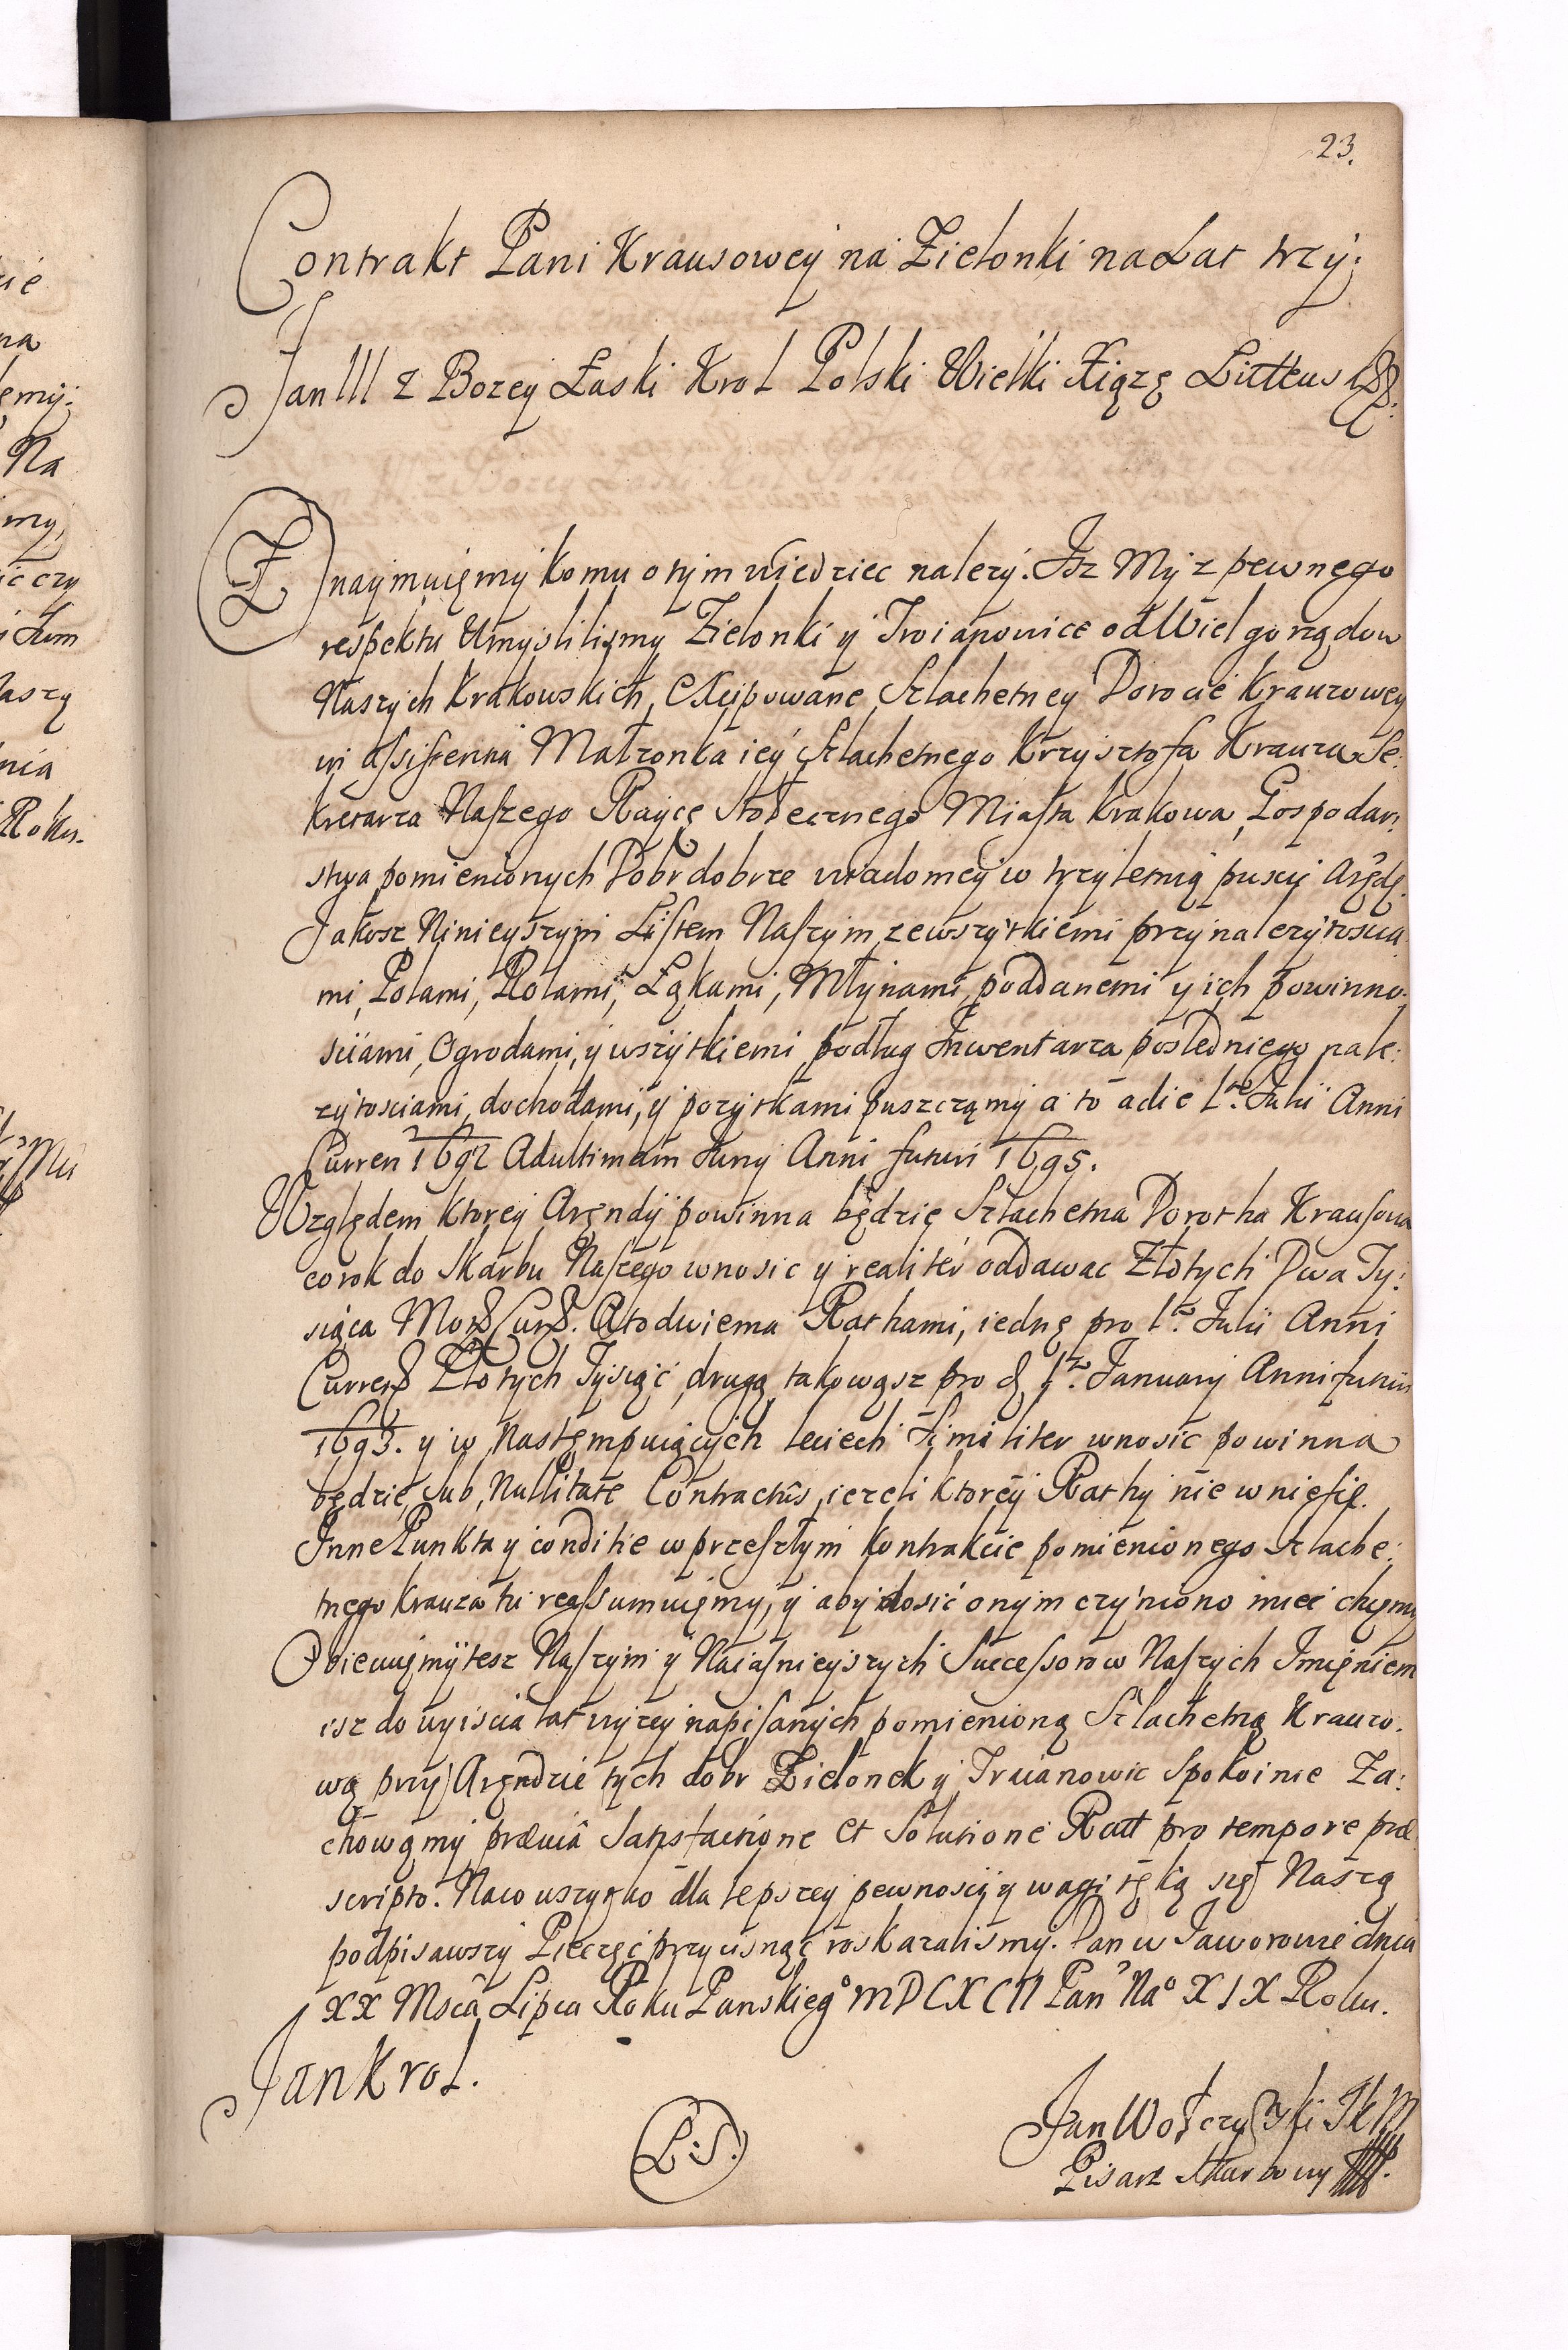 23.
Contrakt Pani Krausowey na Zielonki na Lat trzy.
Jan III z Bozey Łaski Krol Polski Wielki Xiąze Litteus
Znaymuięmy komu o tym wiedziec nalezy. Isz My z pewnego
respektu Umyslilismy Zielonki y Troianowice od Wielgorządow
Naszych Krakowskich, Excipowane Szlachetney Dorocie Krauzowey
w assistenti Małzonka iey Szlachetnego Krzysztofa Krauza Se:
kretarza Naszego Raycę Stołecznego Miasta Krakowa, Gospodar:
stwa pomienionych Dobr dobrze wiadomey w trzyletnią puscic Aręde.
Jakosz Ninieyszym Listem Naszym, ze wszytkiemi przynalezytoscia
mi, Polami, Rolami, Łąkami, Młynami, poddanemi y ich powinno:
sciami, Ogrodami, y wszytkiemi podług Inwentarza posledniego nale:
zytosciami, dochodami, y pozytkami puszczamy a to a die 1ma Julii Anni
Curren 1692 Ad ultimam Juny Anni futuri 1695.
Względem ktorey Aręndy powinna będzie Szlachetna Dorotha Krausowa
co rok do Skarbu Naszego wnosic y realiter oddawac Złotych Dwa Ty:
siąca Mon Cur. A to dwiema Rathami, iednę pro 1ma Julii Anni
Curren Złotych Tysiąc, drugą takowąsz pro 1ma January Anni futuri
1693. y w Nastęmpuiących leciech Similiter wnosic powinna
będzie, sub Nullitate Contractûs, iezeli ktorey Rathy nie wniesie.
Inne Punkta y conditie w przeszłym kontrakcie pomienionego Szlache:
tnego Krauza tu reassumuięmy, y aby dosic onym czyniono miec chcęmy
Obiecuięmy tesz Naszym y Naiasnieyszych Successorow Naszych Imięniem
isz do wyiscia lat wyzey napisanych pomienioną Szlachetną Krauzo:
wą przy Aręndzie tych dobr Zielonek y Troianowic Spokoinie Za:
chowamy præviâ Satisfactione et Solutione Ratt pro tempore præ
scripto. Na co wszytko dla lepszey pewnosci y wagi ręką się Naszą
podpisawszy Pieczęc przycisnąc roskazalismy. Dan w Jaworowie dnia
XX Msca Lipca Roku Panskiego MDCXCII Pan Nao XIX Roku.
Jan Krol.
L: S.
Jan Wołczynski JKM
Pisarz Skarbowy